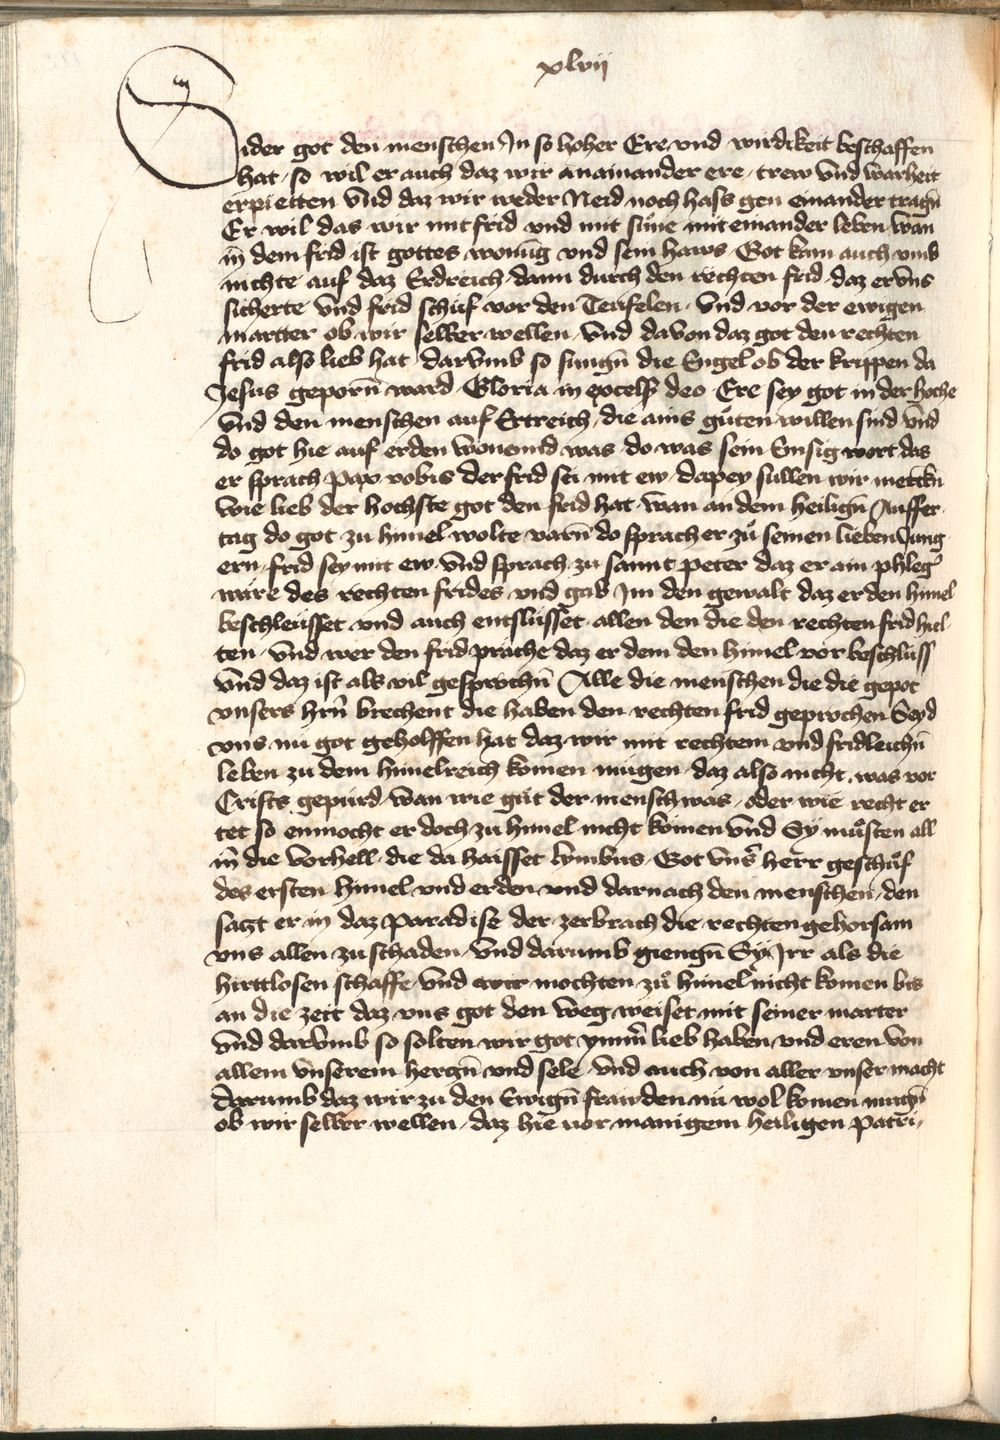 xlvii
Sider got den menschen Jn so hoher Ere vnd wirdikeit beschaffen
hat · so wil er auch daz wir anainander ere · trew vnd warheit
erpietten vnd daz wir weder Neid noch hass gen einander tragn̄
Er wil das wir mit frid vnd mit süne mit einander leben · wan
in dem frid ist gottes wonūg vnd sein haws · Got kam auch vmb
nichte auf daz Erdreich · dann durch den rechten frid · daz er vns
sicherte vnd frid schüf vor den Teufelen · vnd vor der ewigen
martter ob wir selber wellen · vnd davon daz got den rechten
frid also lieb hat · darvmb so sungn̄ die Engel ob der krippen da
Jesus geporn̄ ward · Gloria in excelsis deo · Ere sey got in der hoche
vnd den menschen auf Ertreich · die ains gůten willen sind vnd
do got hie auf erden wonend was do was sein Emsig wort das
er sprach pax vobis der frid sei mit ew · dapey sullen wir merckn̄
wie lieb der hochste got den frid hat · wan an dem heilign̄ Auffer
tag do got zu himel wolte varn̄ do sprach er zů seinen lieben Jung
ern · frid sey mit ew · vnd sprach zu sannt peter daz er ain phleg᷑
wäre des rechten frides vnd gab Jm den gewalt daz er den himel
beschleüsset vnd auch entslüsset · allen den die den rechten frid hiel
ten · vnd wer den frid präche daz er dem den himel vor beschlüss
vnd daz ist als vil gesprochn̄ Alle die menschen die die gepot
vnsers hrn̄ brechent die haben den rechten frid geprochen Seyd
vns nü got geholffen hat daz wir mit rechtem vnd fridleichn̄
leben zu dem himelreich komen mügen · daz also nicht was vor
Crists gepürd · wan wie güt der mensch was · oder wie recht er
tet so enmocht er doch zu himel nicht komen vnd Sy můsten all
in die vorhell · die da haisset lymbus · Got vns᷑ herr geschůf
des ersten himel vnd erden vnd darnach den menschen · den
satzt er in daz paradise der zerbrach die rechten gehorsam
vns allen zu schaden · vnd darumb giengn̄ Sy Jrr als die
hirttlosen schaffe · vnd wir mochten zů himel nicht komen bis
an die zeit daz vns got den weg weiset mit seiner marter
vnd darvmb so solten wir got ymm̄ lieb haben vnd eren von
allem vnserem herczn̄ vnd sele · vnd auch von aller vnser macht
darumb daz wir zu den Ewign̄ frawden nü wol komen mugn̄
ob wir selber wellen · daz hie vor manigem heiligen patri⸗